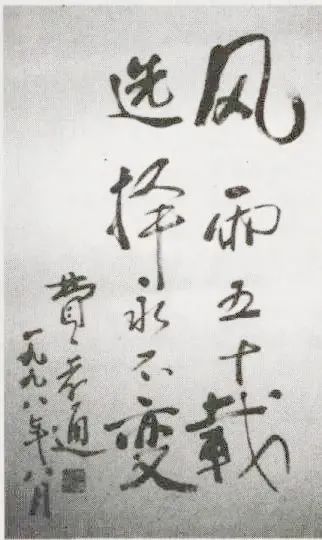 风雨五十载
选择永不变
费孝通
一九九八年八月